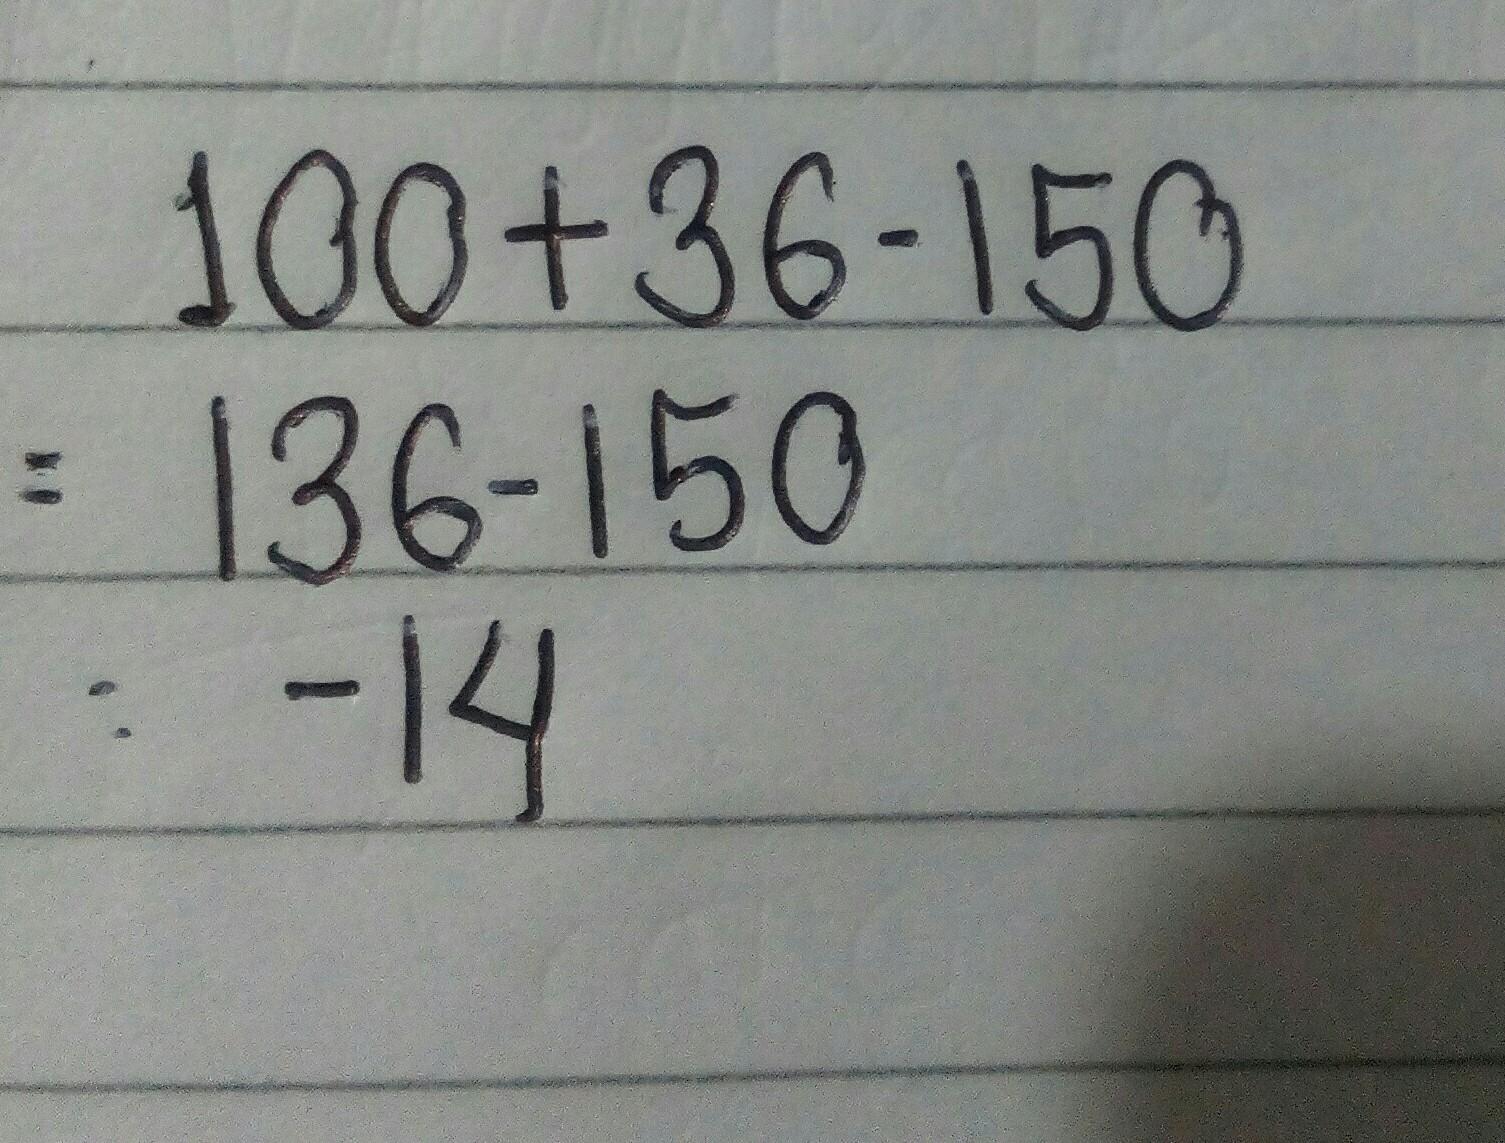 100+36-150
= 136-150
: -14